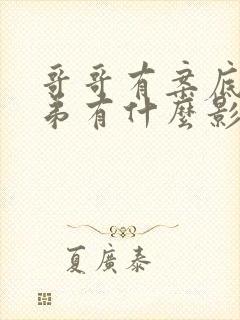 哥哥有案底
弟有什麼影
夏廣泰